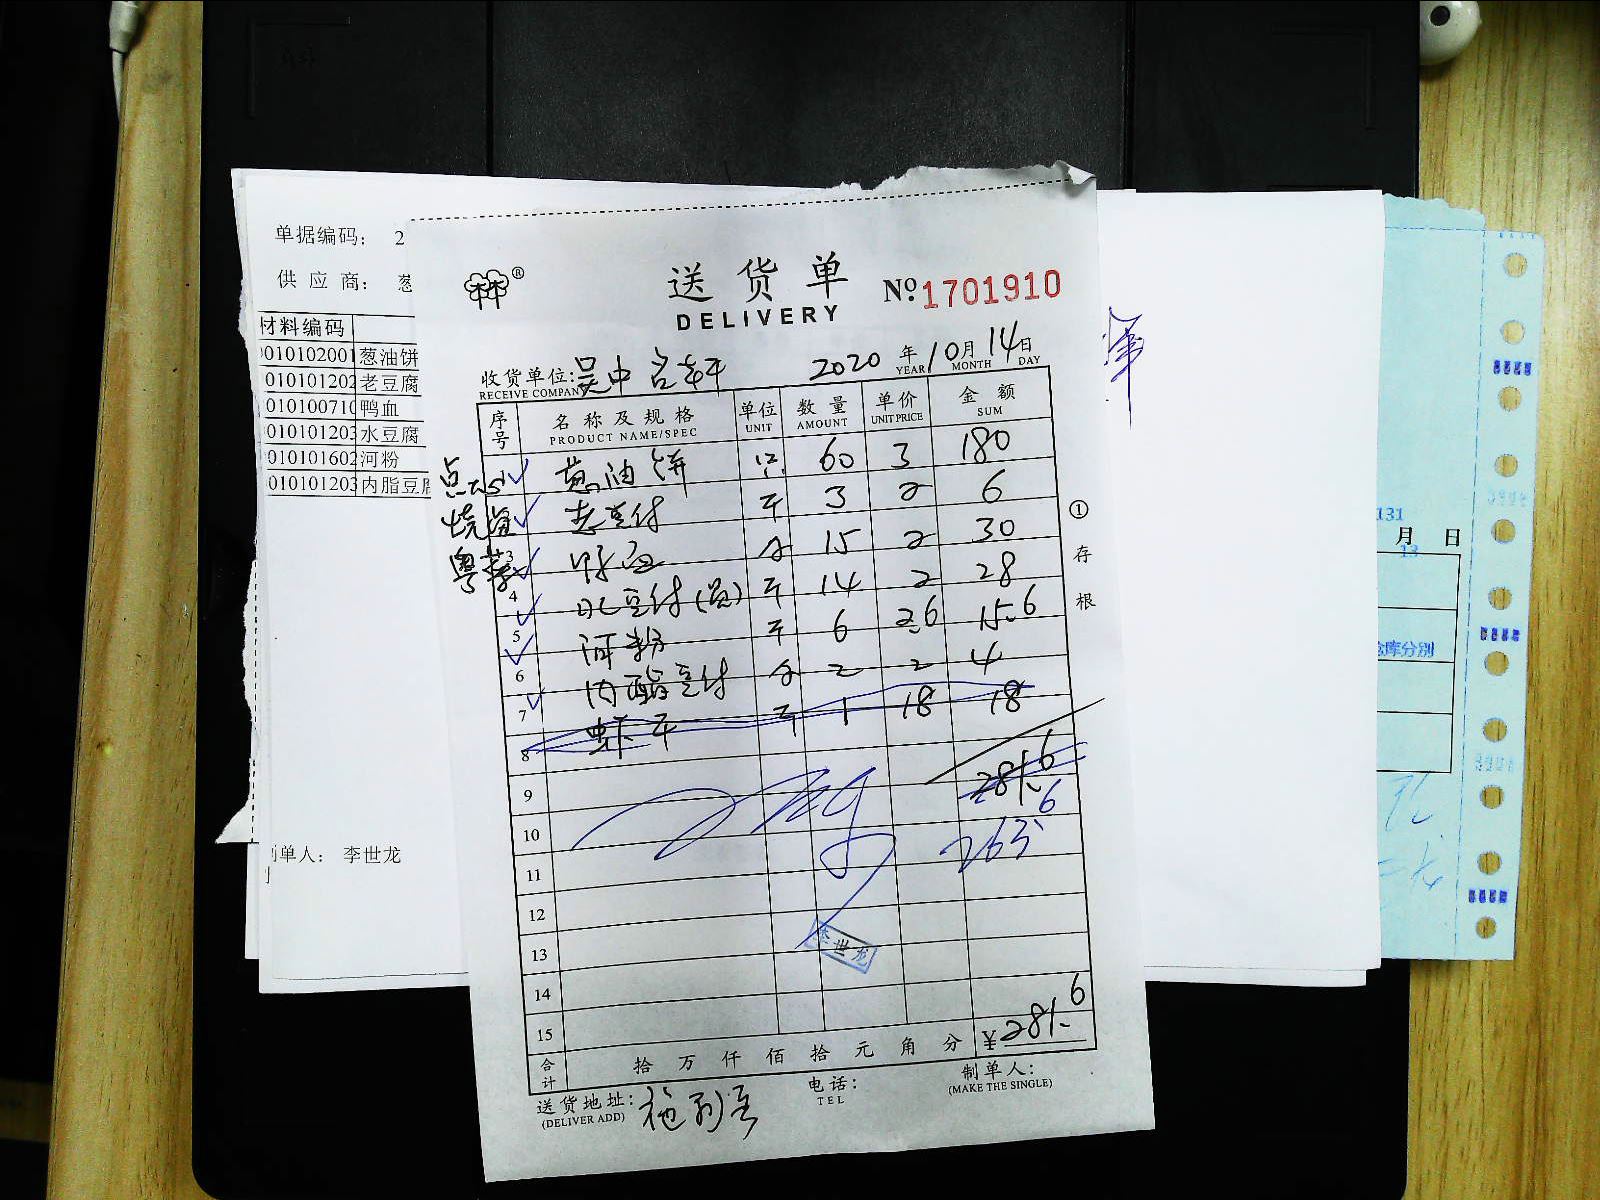 单据编码： 2
供 应 商： 葱
材料编码
010102001 葱油饼
010101202 老豆腐
010100710 鸭血
010101203 水豆腐
010101602 河粉
010101203 内脂豆腐
制单人： 李世龙
®
送货单 №1701910
DELIVERY
收货单位： 吴中 2020 年 10 月 14 日
RECEIVE COMPANY YEAR MONTH DAY
序号 名称及规格 单位 数量 单价 金额
PRODUCT NAME/SPEC UNIT AMOUNT UNIT PRICE SUM
点心 葱油饼 60 3 180
烧卤 老豆付 斤 3 2 6
粤菜 3 鸭血 合 15 2 30
4 水豆付 斤 14 2 28
5 河粉 斤 6 2.6 15.6
6 内酯豆付 合 2 2 4
7 虾干 斤 1 18 18
8 281.6
9
10 263.6
11
12
13 李世龙
14
15
合计 拾 万 仟 佰 拾 元 角 分 ¥281.6
送货地址： 电话： 制单人：
(DELIVER ADD) TEL (MAKE THE SINGLE)
① 存根
131
13
月 日
仓库分别